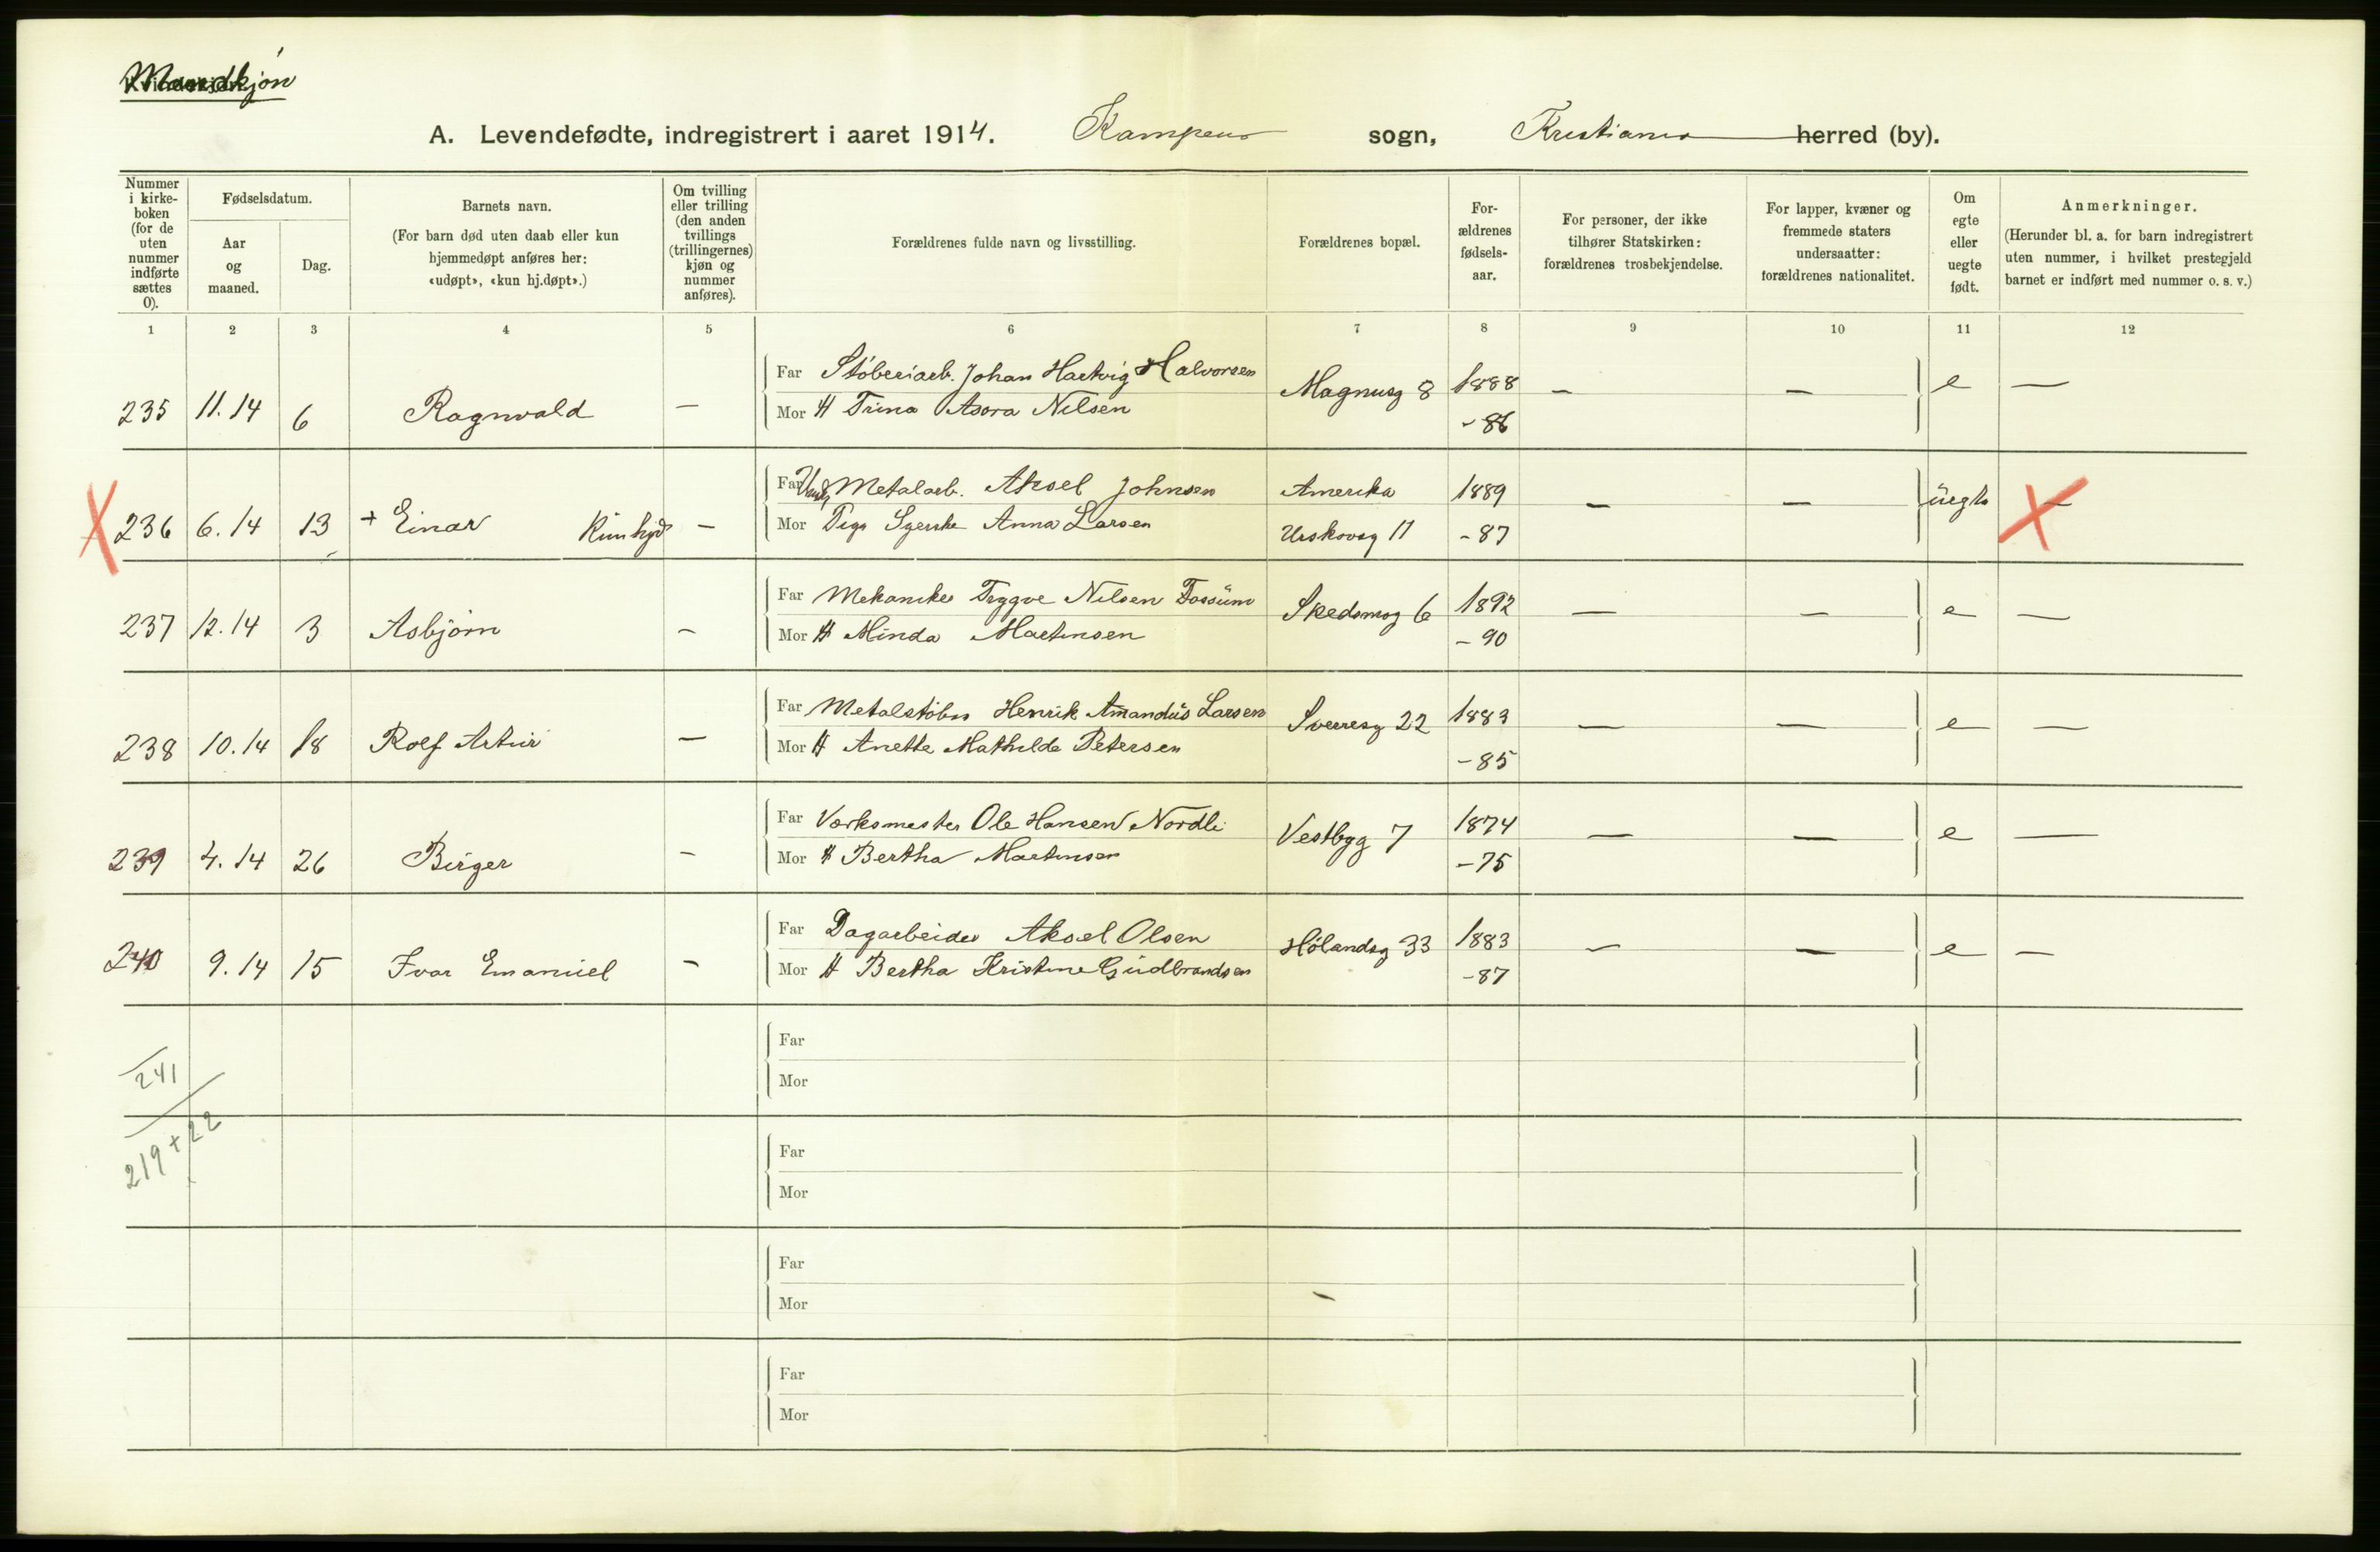 Mandkjøn
A. Levendefødte, indregistrert i aaret 1914. Kampens sogn, Kristiania herred (by).
Nummer i kirke-boken (for de uten nummer indførte sættes 0).
Fødselsdatum.
Aar og maaned.
Dag.
Barnets navn.
(For barn død uten daab eller kun hjemmedøpt anføres her: «udøpt», «kun hj.døpt».)
Om tvilling eller trilling (den anden tvillings (trillingernes) kjøn og nummer anføres).
Forældrenes fulde navn og livsstilling.
Forældrenes bopæl.
For-ældrenes fødsels-aar.
For personer, der ikke tilhører Statskirken: forældrenes trosbekjendelse.
For lapper, kvæner og fremmede staters undersaatter: forældrenes nationalitet.
Om egte eller uegte født.
Anmerkninger.
(Herunder bl. a. for barn indregistrert uten nummer, i hvilket prestegjeld barnet er indført med nummer o. s. v.)
1 2 3 4 5 6 7 8 9 10 11 12
Far Støberiarb. Johan Hartvig Halvorsen Magnusg 8 1888 — — e —
235 11.14 6 Ragnvald — Mor H Trina Asora Nilsen - 86
Far Metalarb. Aksel Johnsen Amerika 1889 — — üegte —
X 236 6.14 13 + Einar Kün hjd — Mor Pige Syerske Anna Larsen Urskovsg 11 - 87 X
Far Mekaniker Trygve Nilsen Fossüm Skedsmog 6 1892 — — e —
237 12.14 3 Asbjørn — Mor H Minda Martinsen - 90
Far Metalstøber Henrik Amandüs Larsen Sverresg 22 1883 — — e —
238 10.14 18 Rolf Artür — Mor H Anette Mathilde Petersen - 85
Far Værksmester Ole Hansen Nordli Vestbyg 7 1874 — — e —
239 4.14 26 Birger — Mor H Bertha Martinsen - 75
Far Dagarbeider Aksel Olsen Hølandsg 33 1883 — — e —
240 9.14 15 Ivar Emanüel — Mor H Bertha Kristine Güdbrandsen - 87
Far
241
Mor
219 + 22
Far
Mor
Far
Mor
Far
Mor